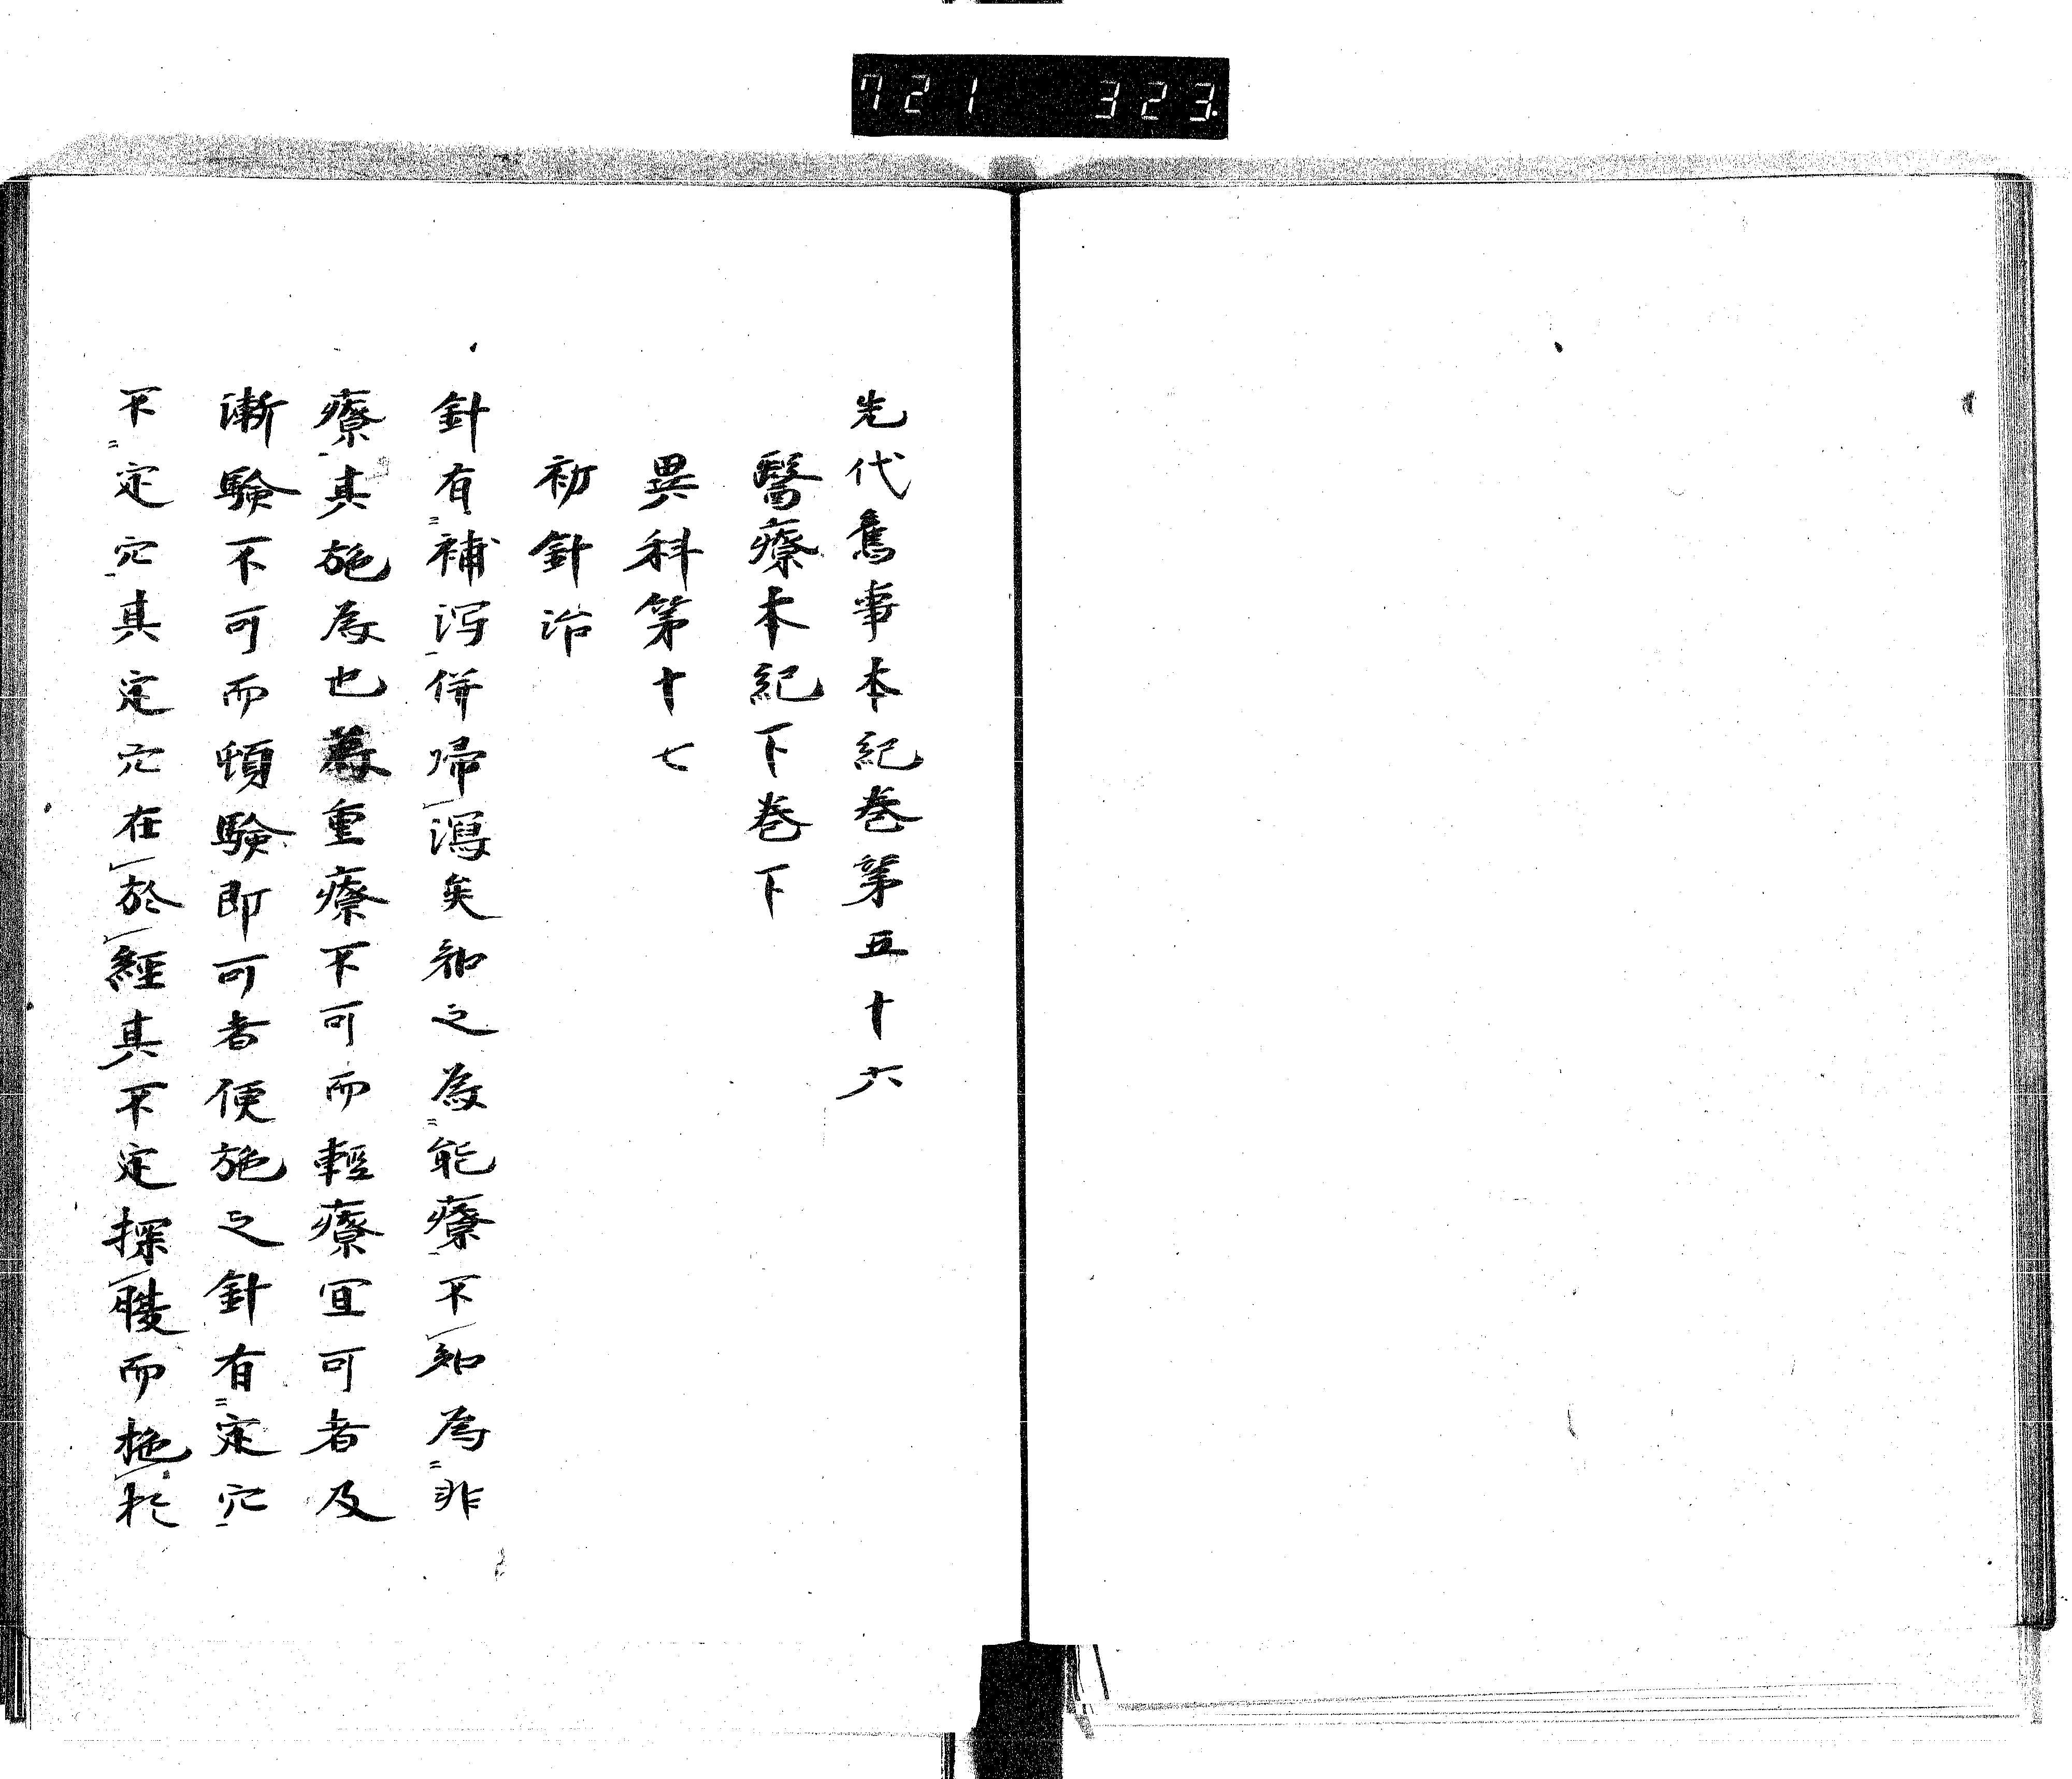 721 323
先代舊事本紀巻第五十六
醫療本紀下巻下
異科第十七
初針治
針有補泻併帰瀉矣知之為能療不知為非
療其施為也為重療不可而輕療宜可者及
漸驗不可而頓驗即可者便施之針有定穴
不定穴其定穴在於經其不定探腹而施於